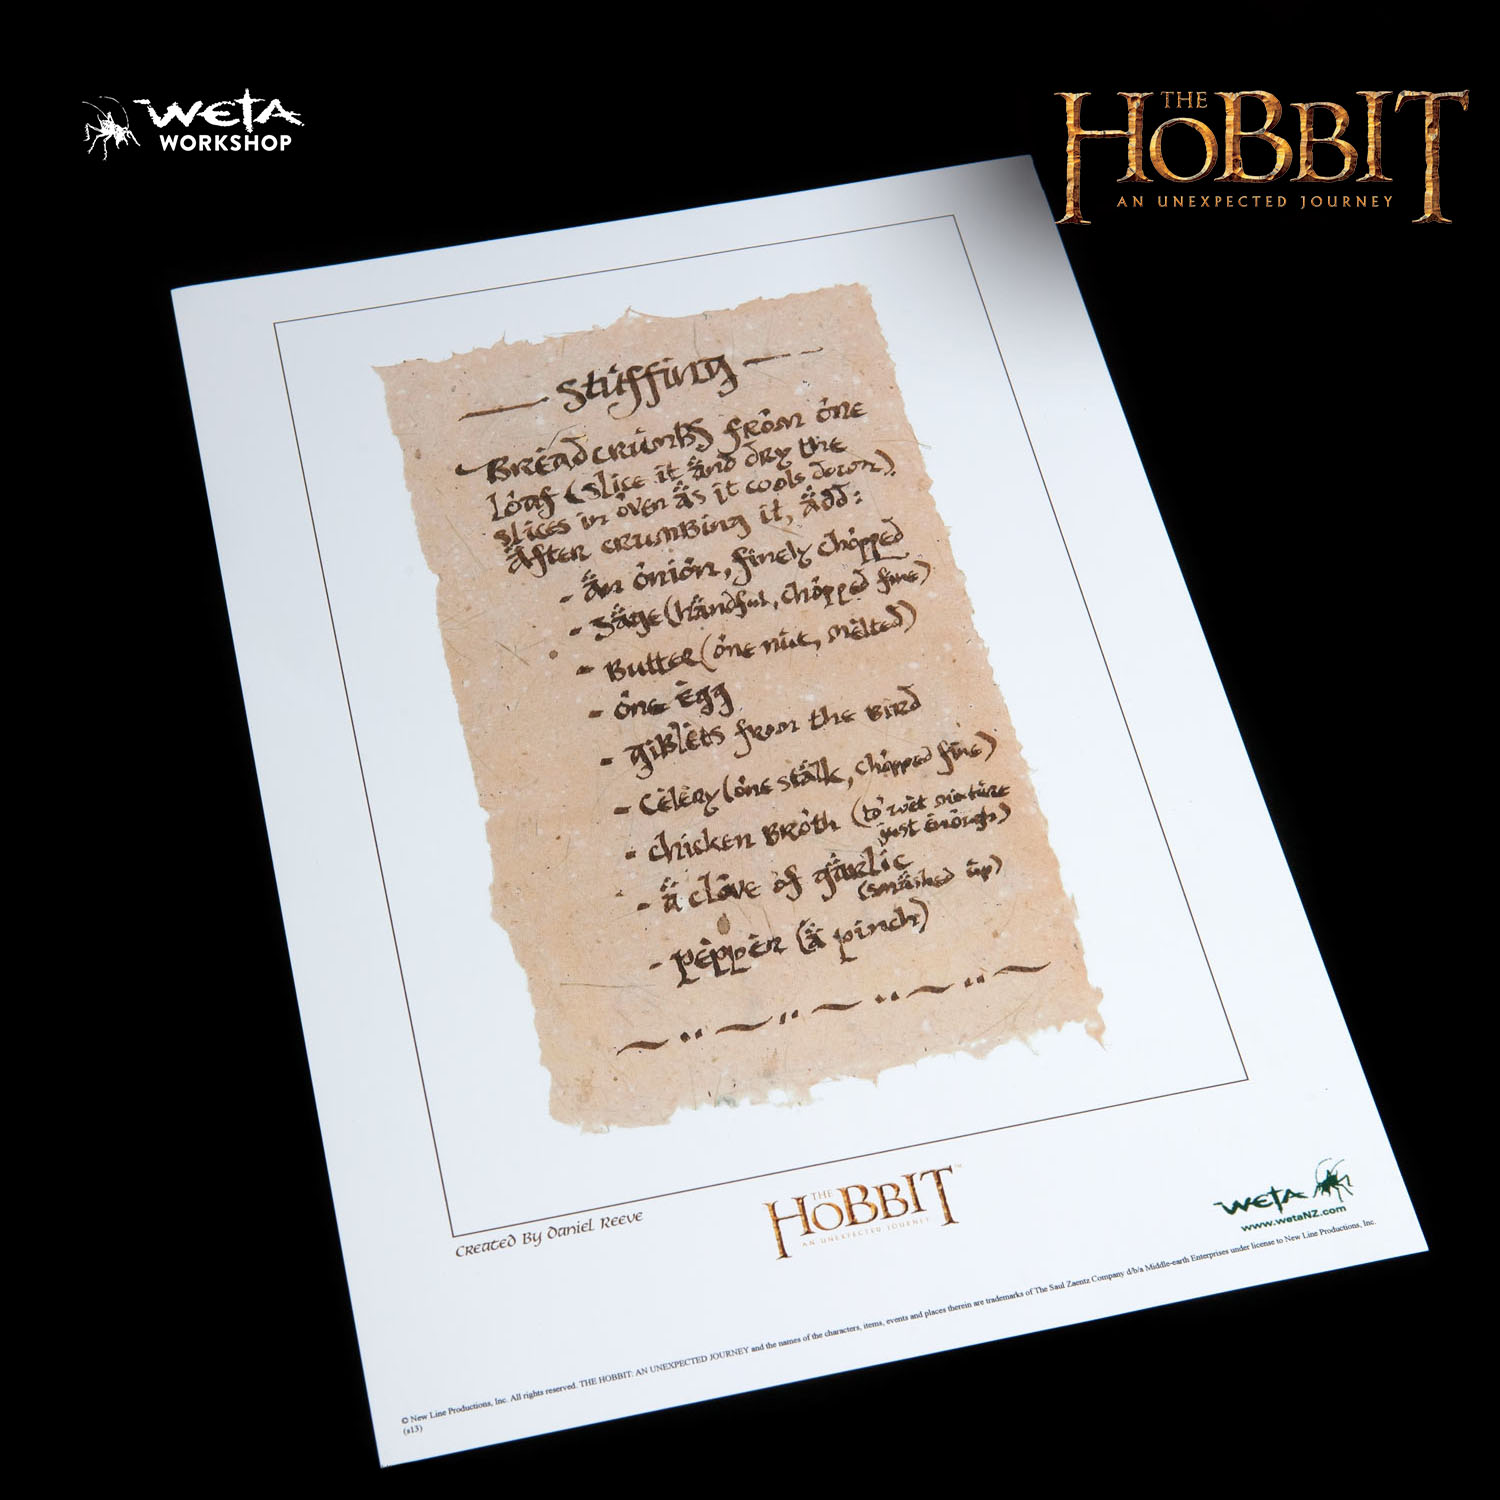 WETA
WORKSHOP
THE
HOBBIT
AN UNEXPECTED JOURNEY
Stuffing
Breadcrumbs from one
loaf (slice it and dry the
slices in oven as it cools down).
After crumbing it, add:
- an onion, finely chopped
- sage (handful, chopped fine)
- Butter (one nut, melted)
- one egg
- giblets from the bird
- Celery (one stalk, chopped fine)
- chicken broth (to wet mixture
just enough)
- a clove of garlic
(smashed up)
- pepper (a pinch)
CREATED BY DANIEL REEVE
THE
HOBBIT™
AN UNEXPECTED JOURNEY
WETA
www.wetaNZ.com
© New Line Productions, Inc. All rights reserved. THE HOBBIT: AN UNEXPECTED JOURNEY and the names of the characters, items, events and places therein are trademarks of The Saul Zaentz Company d/b/a Middle-earth Enterprises under license to New Line Productions, Inc.
(s13)